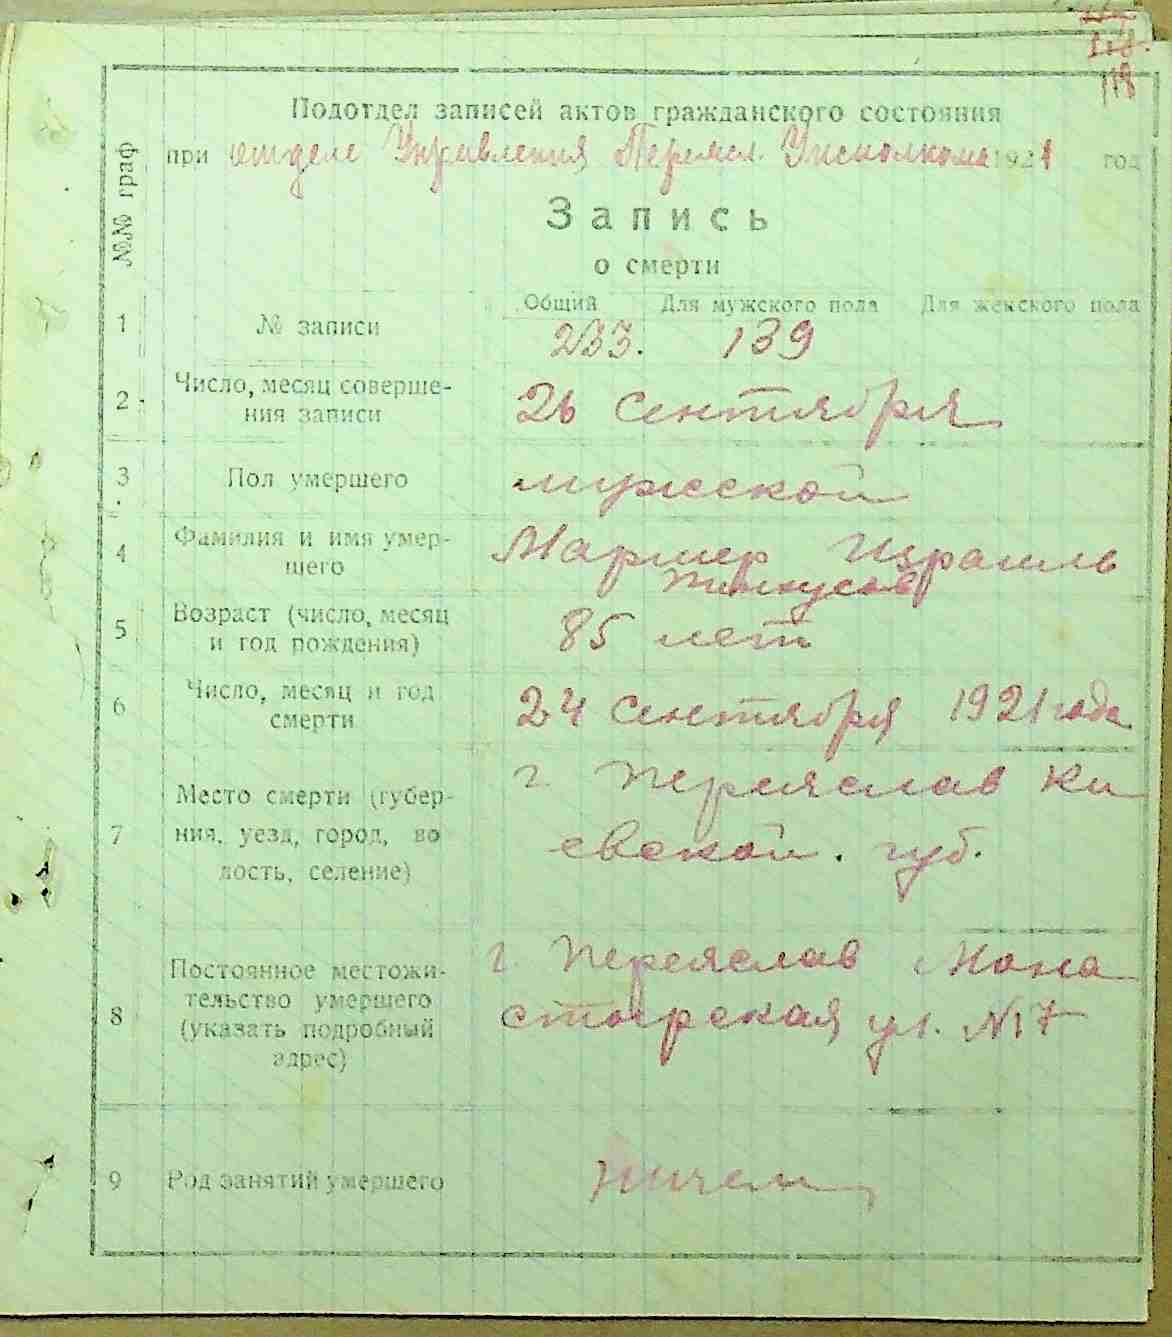 118
Подотдел записей актов гражданского состояния
при отделе Управления Переясл. Уисполкома 1921 год
№№ граф
Запись
о смерти
Общий Для мужского пола Для женского пола
1 № записи 233. 139
2 Число, месяц соверше-
ния записи 26 Сентября
3 Пол умершего мужской
4 Фамилия и имя умер-
шего Маршер Израиль
Пинкусов
5 Возраст (число, месяц
и год рождения) 85 лет
6 Число, месяц и год
смерти 24 Сентября 1921 года
7 Место смерти (губер-
ния, уезд, город, во
лость, селение) г. Переяслав Ки
евской. губ.
8 Постоянное местожи-
тельство умершего
(указать подробный
адрес) г Переяслав Мона
стырская ул. №7
9 Род занятий умершего